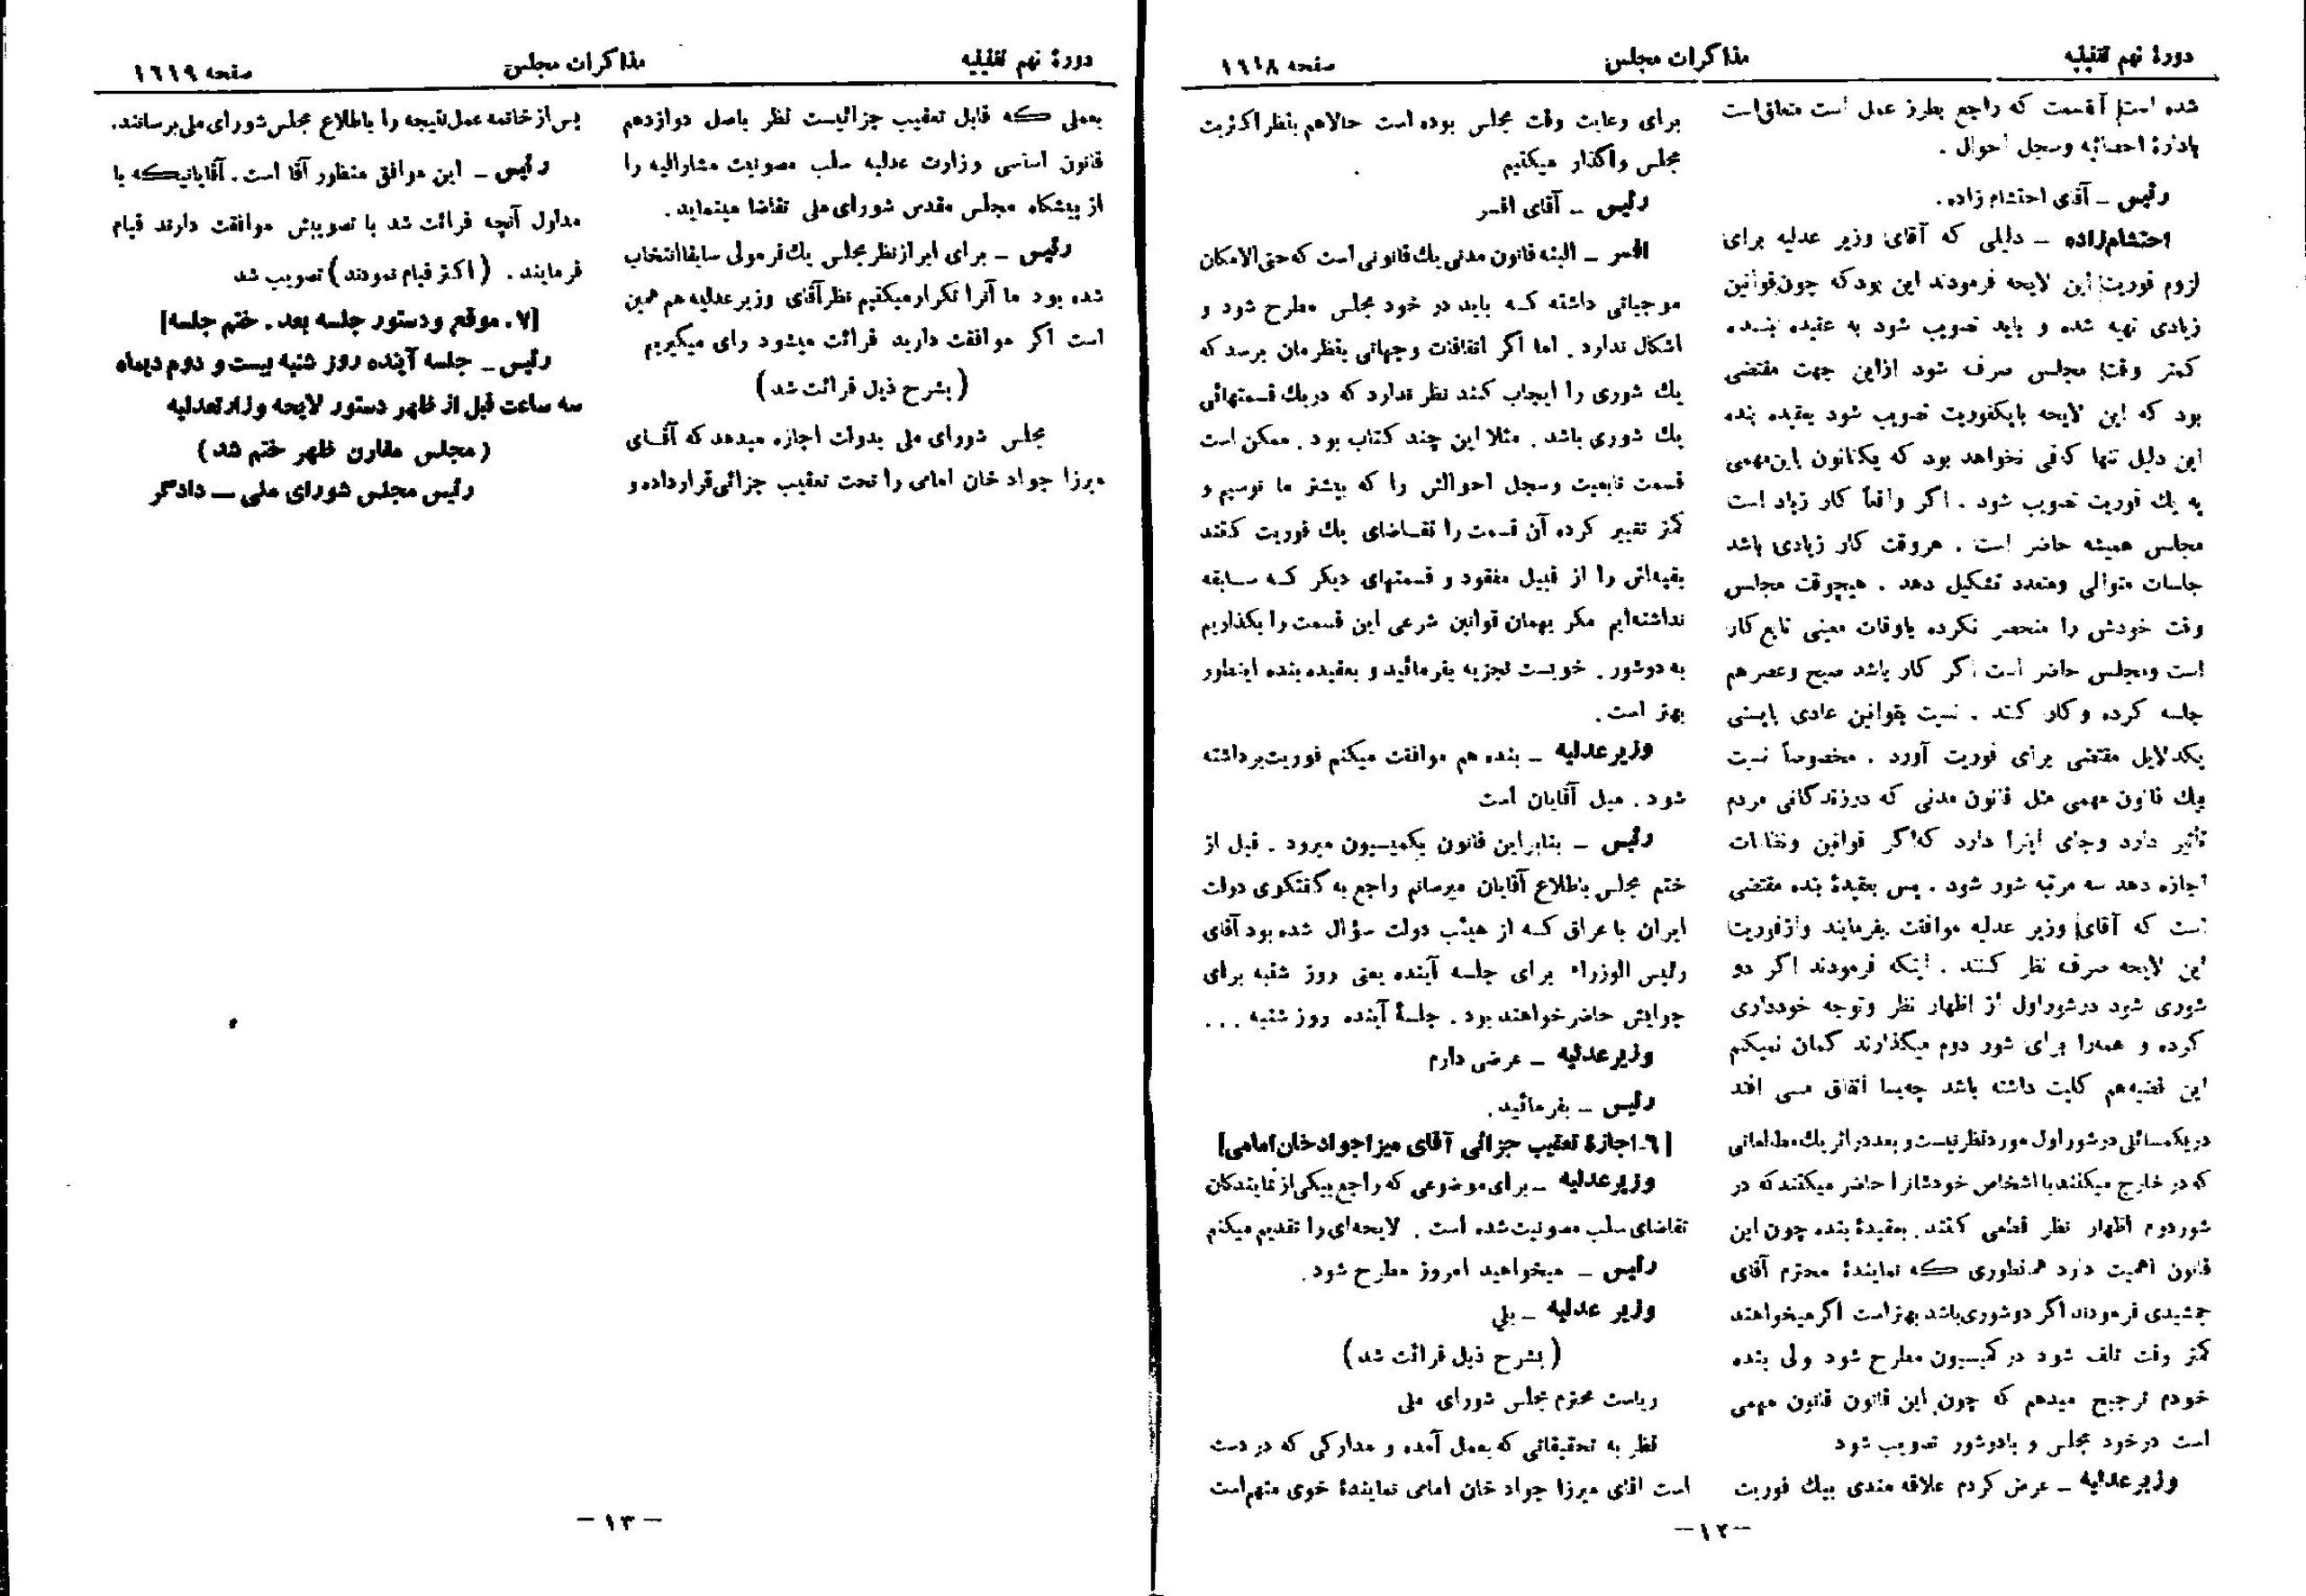 دورهٔ نهم تقنینیه
مذاکرات مجلس
صفحه ۱۶۱۸
شده است آنقسمت که راجع بطرز عمل است متعلق است
بادارهٔ احصائیه وسجل احوال .
رئیس ــ آقای احتشام زاده.
احتشام‌زاده ــ دلیلی که آقای وزیر عدلیه برای
لزوم فوریت این لایحه فرمودند این بود که چون قوانین
زیادی تهیه شده و باید تصویب شود به عقیده بنده
کمتر وقت مجلس صرف شود ازاین جهت مقتضی
بود که این لایحه بایکفوریت تصویب شود بعقیده بنده
این دلیل تنها کافی نخواهد بود که یکقانون باین مهمی
به یك فوریت تصویب شود . اگر واقعاً کار زیاد است
مجلس همیشه حاضر است . هروقت کار زیادی باشد
جلسات متوالی ومتعدد تشکیل دهد . هیچوقت مجلس
وقت خودش را منحصر نکرده باوقات معینی تابع کار
است ومجلس حاضر است اگر کار باشد صبح وعصر هم
جلسه کرده و کار کند . نسبت بقوانین عادی بایستی
یکدلایل مقتضی برای فوریت آورد . مخصوصاً نسبت
بیك قانون مهمی مثل قانون مدنی که درزندگانی مردم
تأثیر دارد وجای اینرا دارد که اگر قوانین ونظامات
اجازه دهد سه مرتبه شور شود . پس بعقیدهٔ بنده مقتضی
است که آقای وزیر عدلیه موافقت بفرمایند وازفوریت
این لایحه صرف نظر کنند . اینکه فرمودند اگر دو
شوری شود درشوراول از اظهار نظر وتوجه خودداری
کرده و همه‌را برای شور دوم میگذارند گمان نمیکنم
این قضیه‌هم کلیت داشته باشد چه‌بسا اتفاق مـی افتد
در یکمسائلی در شور اول مورد نظر نیست و بعد در اثر یك مطالعاتی
که در خارج میکنند یا اشخاص خودشانرا حاضر میکنند که در
شوردوم اظهار نظر قطعی کنند. بعقیدهٔ بنده چون این
قانون اهمیت دارد همانطوری که نمایندهٔ محترم آقای
جمشیدی فرمودند اگر دو شوری باشد بهتراست اگر میخواهند
کمتر وقت تلف شود در کمیسیون مطرح شود ولی بنده
خودم ترجیح میدهم که چون این قانون قانون مهمی
است درخود مجلس و بادوشور تصویب شود
وزیرعدلیه ــ عرض کردم علاقه مندی بیك فوریت
برای رعایت وقت مجلس بوده است حالاهم بنظر اکثریت
مجلس واگذار میکنیم
رئیس ــ آقای افسر
افسر ــ البته قانون مدنی یك قانونی است که حتی‌الامکان
موجباتی داشته کـه باید در خود مجلس مطرح شود و
اشکال ندارد . اما اگر اتفاقات وجهاتی بنظرمان برسد که
یك شوری را ایجاب کند نظر ندارد که در یك قسمتهائی
یك شوری باشد . مثلا این چند کتاب بود . ممکن است
قسمت تابعیت وسجل احوالش را که بیشتر ما توسیم و
کمتر تغییر کرده آن قسمت را تقـاضای یك فوریت کنند
بقیه‌اش را از قبیل مفقود و قسمتهای دیگر کـه سـابقه
نداشته‌ایم مگر بهمان قوانین شرعی این قسمت را بگذاریم
به دوشور . خوبست تجزیه بفرمائید و بعقیده بنده اینطور
بهتر است .
وزیرعدلیه ــ بنده هم موافقت میکنم فوریت برداشته
شود . میل آقایان است
رئیس ــ بنابراین قانون بکمیسیون میرود . قبل از
ختم مجلس باطلاع آقایان میرسانم راجع به گفتگوی دولت
ایران با عراق کـه از هیئت دولت سؤال شده بود آقای
رئیس الوزراء برای جلسه آینده یعنی روز شنبه برای
جوابش حاضر خواهند بود . جلسهٔ آینده روز شنبه ...
وزیرعدلیه ــ عرضی دارم
رئیس ــ بفرمائید.
[۶ـ اجازهٔ تعقیب جزائی آقای میرزا جوادخان امامی]
وزیرعدلیه ــ برای موضوعی که راجع بیکی از نمایندگان
تقاضای سلب مصونیت شده است . لایحه‌ای را تقدیم میکنم
رئیس ــ میخواهید امروز مطرح شود.
وزیر عدلیه ــ بلی
(بشرح ذیل قرائت شد)
ریاست محترم مجلس شورای ملی
نظر به تحقیقاتی که بعمل آمده و مدارکی که در دست
است اقای میرزا جواد خان امامی نمایندهٔ خوی متهم است
ــ ۱۲ ــ
دورهٔ نهم تقنینیه
مذاکرات مجلس
صفحه ۱۶۱۹
بعملی کـه قابل تعقیب جزائیست نظر باصل دوازدهم
قانون اساسی وزارت عدلیه سلب مصونیت مشارالیه را
از پیشگاه مجلس مقدس شورای ملی تقاضا مینماید.
رئیس ــ برای ابراز نظر مجلس یك فرمولی سابقا انتخاب
شده بود ما آنرا تکرار میکنیم نظرآقای وزیر عدلیه هم همین
است اگر موافقت دارید قرائت میشود رای میگیریم
(بشرح ذیل قرائت شد)
مجلس شورای ملی بدولت اجازه میدهد که آقـای
میرزا جواد خان امامی را تحت تعقیب جزائی قرار داده و
پس از خاتمه عمل نتیجه را باطلاع مجلس شورای ملی برسانند.
رئیس ــ این موافق منظور آقا است . آقایانیکه با
مدلول آنچه قرائت شد با تصویبش موافقت دارند قیام
فرمایند . (اکثر قیام نمودند) تصویب شد
[۷. موقع ودستور جلسه بعد . ختم جلسه]
رئیس ــ جلسه آینده روز شنبه بیست و دوم دیماه
سه ساعت قبل از ظهر دستور لایحه وزارتعدلیه
(مجلس مقارن ظهر ختم شد)
رئیس مجلس شورای ملی ــ دادگر
ــ ۱۳ ــ